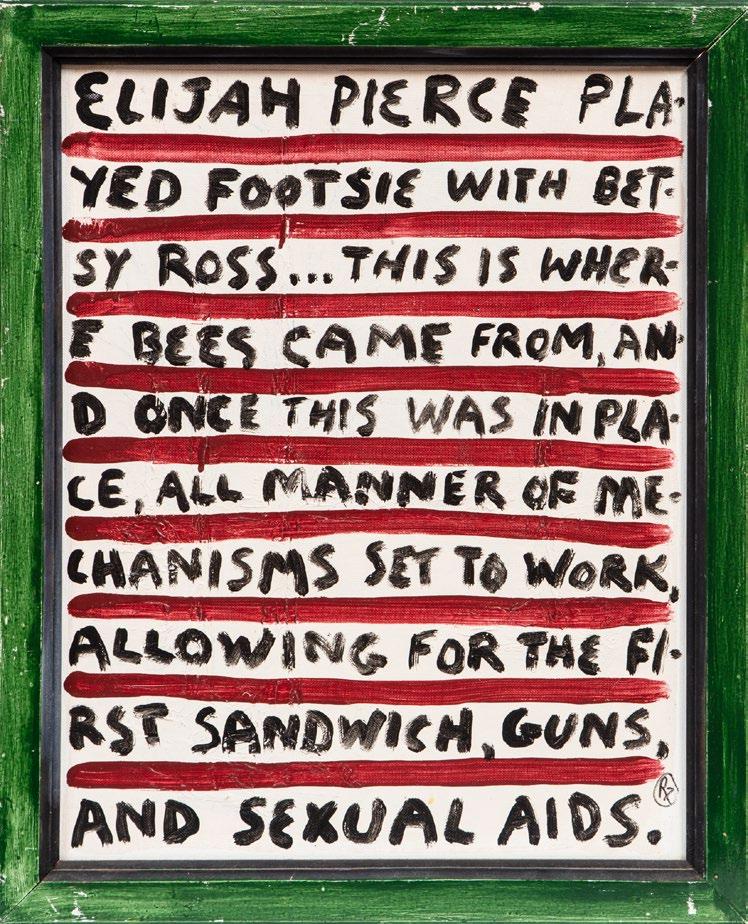 ELIJAH PIERCE PLA-
YED FOOTSIE WITH BET-
SY ROSS...THIS IS WHER-
E BEES CAME FROM, AN-
D ONCE THIS WAS IN PLA-
CE, ALL MANNER OF ME-
CHANISMS SET TO WORK,
ALLOWING FOR THE FI-
RST SANDWICH, GUNS,
AND SEXUAL AIDS.